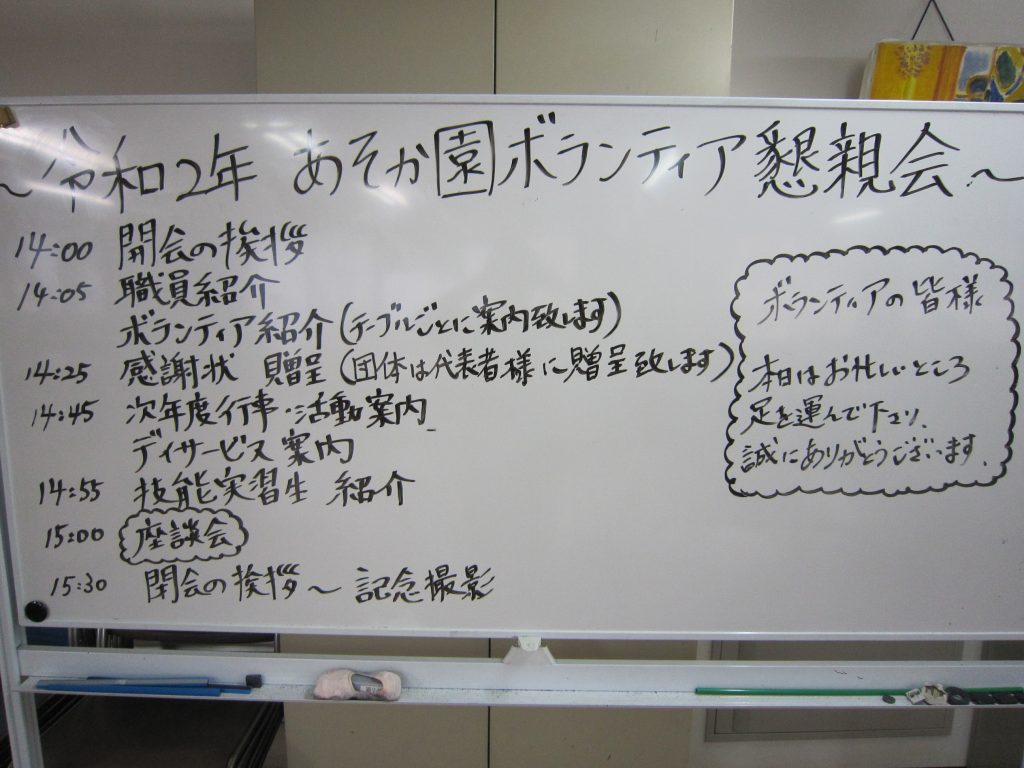 ～令和2年 あそか園ボランティア懇親会～
14:00 開会の挨拶
14:05 職員紹介
ボランティア紹介(テーブルごとに案内致します)
14:25 感謝状 贈呈(団体は代表者様に贈呈致します)
14:45 次年度行事・活動案内
デイサービス案内
14:55 技能実習生 紹介
15:00 座談会
15:30 閉会の挨拶～記念撮影
ボランティアの皆様
本日はお忙しいところ
足を運んで下さり、
誠にありがとうございます。